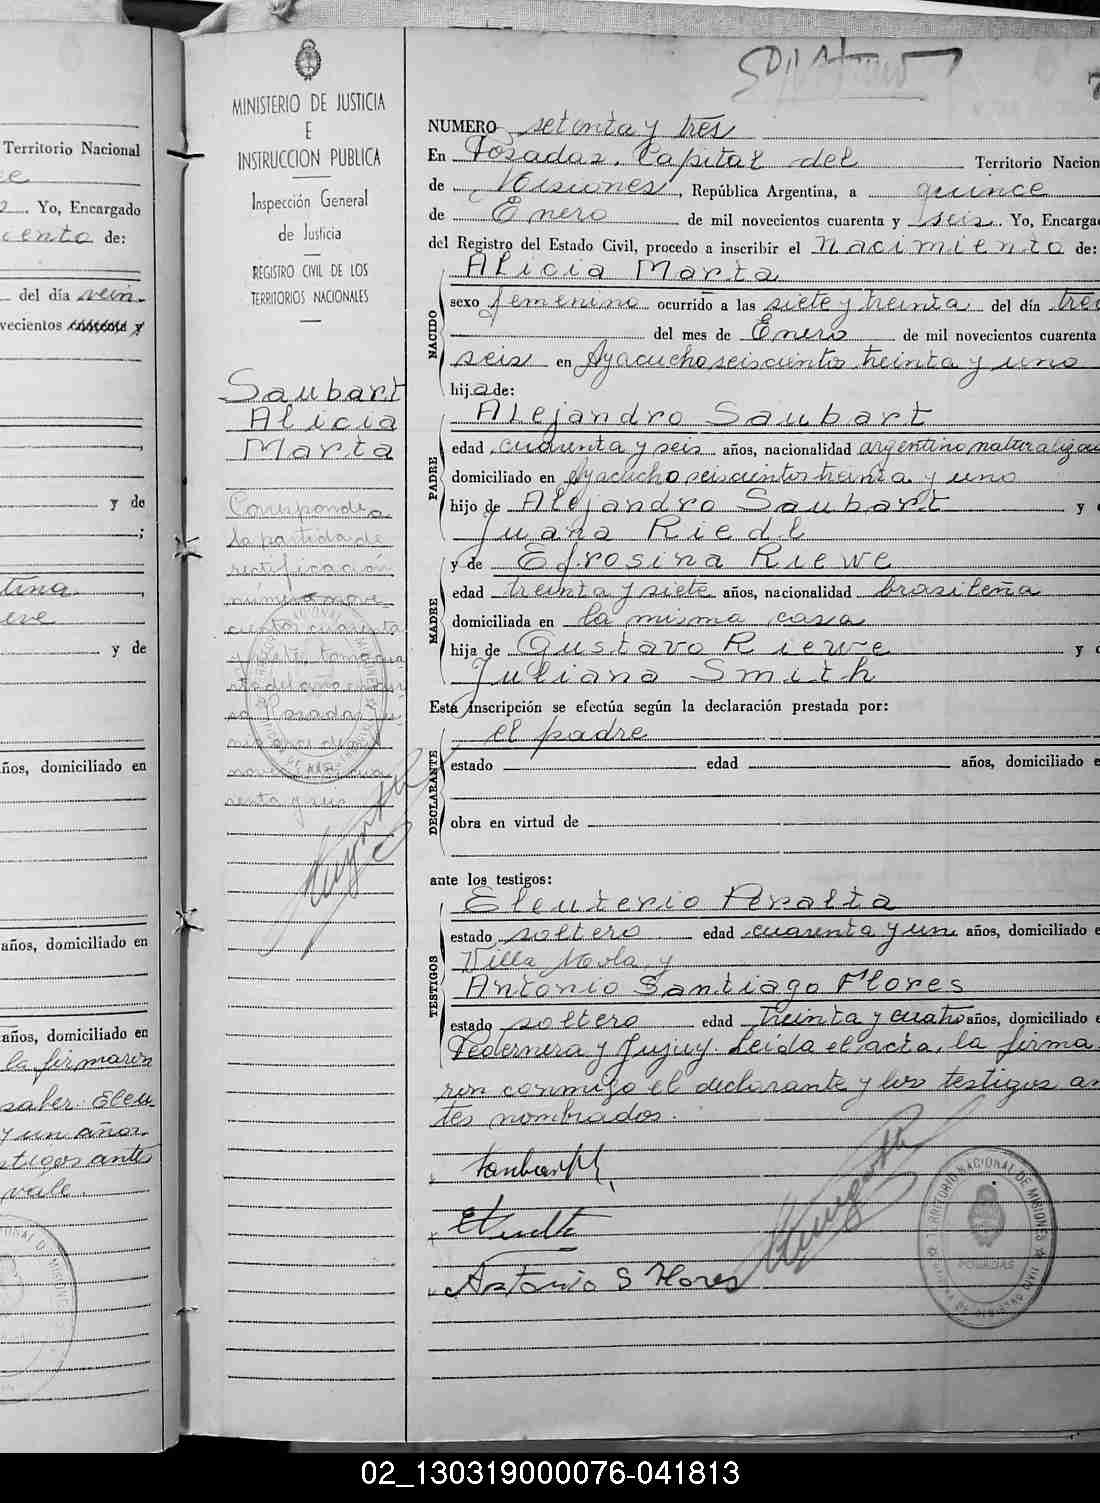 Territorio Nacional
Yo, Encargado
de:
del día vein-
vecientos
y de
;
tina
y de
años, domiciliado en
años, domiciliado en
años, domiciliado en
la firmaron
saber. Eleu-
y un años.
testigos antes
vale.
MINISTERIO DE JUSTICIA
E
INSTRUCCION PUBLICA
Inspección General
de Justicia
REGISTRO CIVIL DE LOS
TERRITORIOS NACIONALES
Saubart
Alicia
Marta
Corresponde a
la partida de
rectificación
número nove-
NUMERO setenta y tres
En Posadas, Capital del Territorio Nacion
de Misiones, República Argentina, a quince
de Enero de mil novecientos cuarenta y seis. Yo, Encargad
del Registro del Estado Civil, procedo a inscribir el nacimiento de:
NACIDO
Alicia Marta
sexo femenino ocurrido a las siete y treinta del día tres
del mes de Enero de mil novecientos cuarenta
seis en Ayacucho seiscientos treinta y uno
hija de:
PADRE
Alejandro Saubart
edad cuarenta y seis años, nacionalidad argentino naturalizad
domiciliado en Ayacucho seiscientos treinta y uno
hijo de Alejandro Saubart y
Juana Riedl
MADRE
y de Efrosina Riewe
edad treinta y siete años, nacionalidad brasileña
domiciliada en la misma casa
hija de Gustavo Riewe y
Juliana Smith
Esta inscripción se efectúa según la declaración prestada por:
DECLARANTE
el padre
estado edad años, domiciliado e
obra en virtud de
ante los testigos:
TESTIGOS
Eleuterio Peralta
estado soltero edad cuarenta y un años, domiciliado e
Villa Mola y
Antonio Santiago Flores
estado soltero edad treinta y cuatro años, domiciliado e
Pedernera y Jujuy. Leída el acta, la firma
ron conmigo el declarante y los testigos an
tes nombrados.
Antonio S Flores
TERRITORIO NACIONAL DE MISIONES
POSADAS
02_130319000076-041813